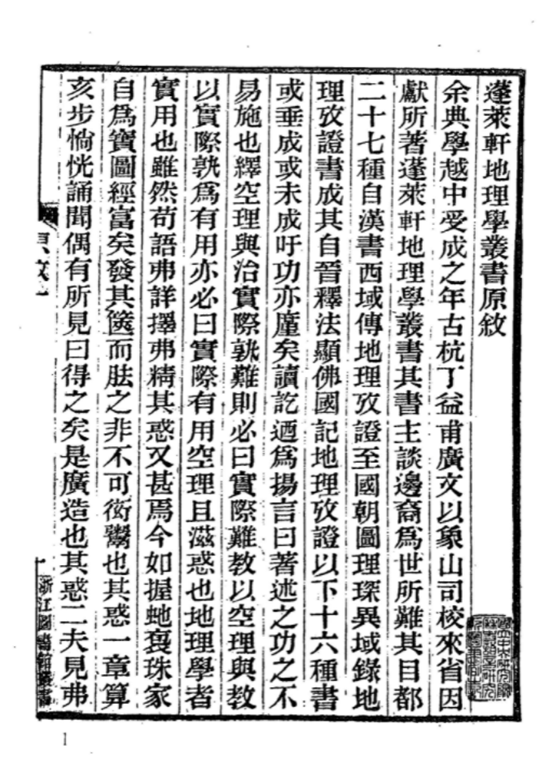 蓬萊軒地理學叢書原敘
余典學越中受成之年古杭丁益甫廣文以象山司校來省因
獻所著蓬萊軒地理學叢書其書主談邊裔爲世所難其目都
二十七種自漢書西域傳地理攷證至國朝圖理琛異域錄地
理攷證書成其自晉釋法顯佛國記地理攷證以下十六種書
或垂成或未成吁功亦廑矣讀訖迺爲揚言曰著述之功之不
易施也繹空理與治實際孰難則必曰實際難教以空理與教
以實際孰爲有用亦必曰實際有用空理且滋惑也地理學者
實用也雖然苟語弗詳擇弗精其惑又甚焉今如握虵裒珠家
自爲寶圖經富矣發其篋而胠之非不可衒鬻也其惑一章算
亥步惝恍誦聞偶有所見曰得之矣是廣造也其惑二夫見弗
浙江圖書館叢書
1